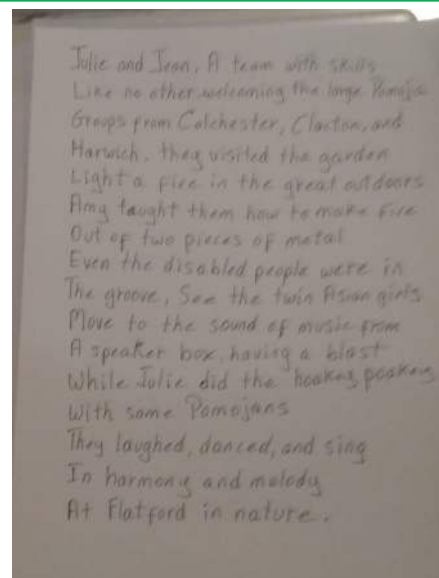 Julie and Jean, A team with skills
Like no other welcoming the large Pomoja
Groups from Colchester, Clacton, and
Harwich, they visited the garden
Light a fire in the great outdoors
Amy taught them how to make fire
Out of two pieces of metal
Even the disabled people were in
The groove, See the twin Asian girls
Move to the sound of music from
A speaker box, having a blast
While Julie did the hookey pookey
With some Pomojans
They laughed, danced, and sing
In harmony and melody
At Flatford in nature.